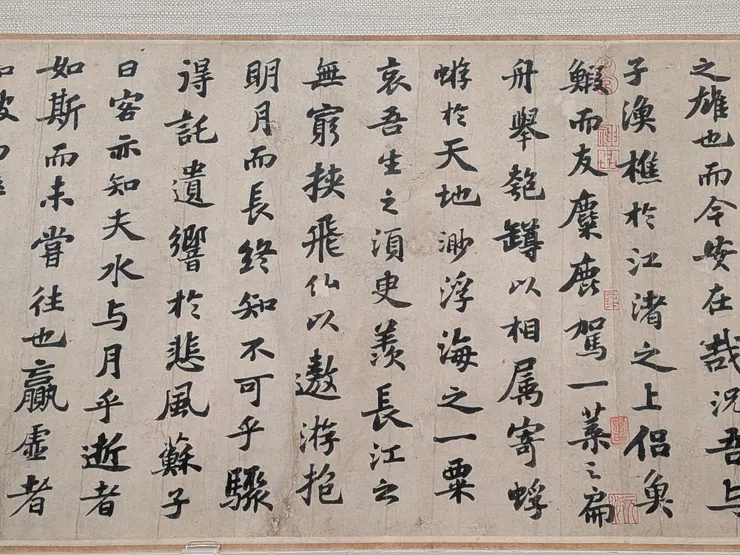 之雄也而今安在哉況吾与
子漁樵於江渚之上侶魚
鰕而友麋鹿駕一葉之扁
舟舉匏罇以相属寄蜉
蝣於天地渺浮海之一粟
哀吾生之須臾羨長江之
無窮挟飛仙以遨游抱
明月而長終知不可乎驟
得託遺響於悲風蘇子
曰客亦知夫水与月乎逝者
如斯而未嘗往也贏虛者
如彼而